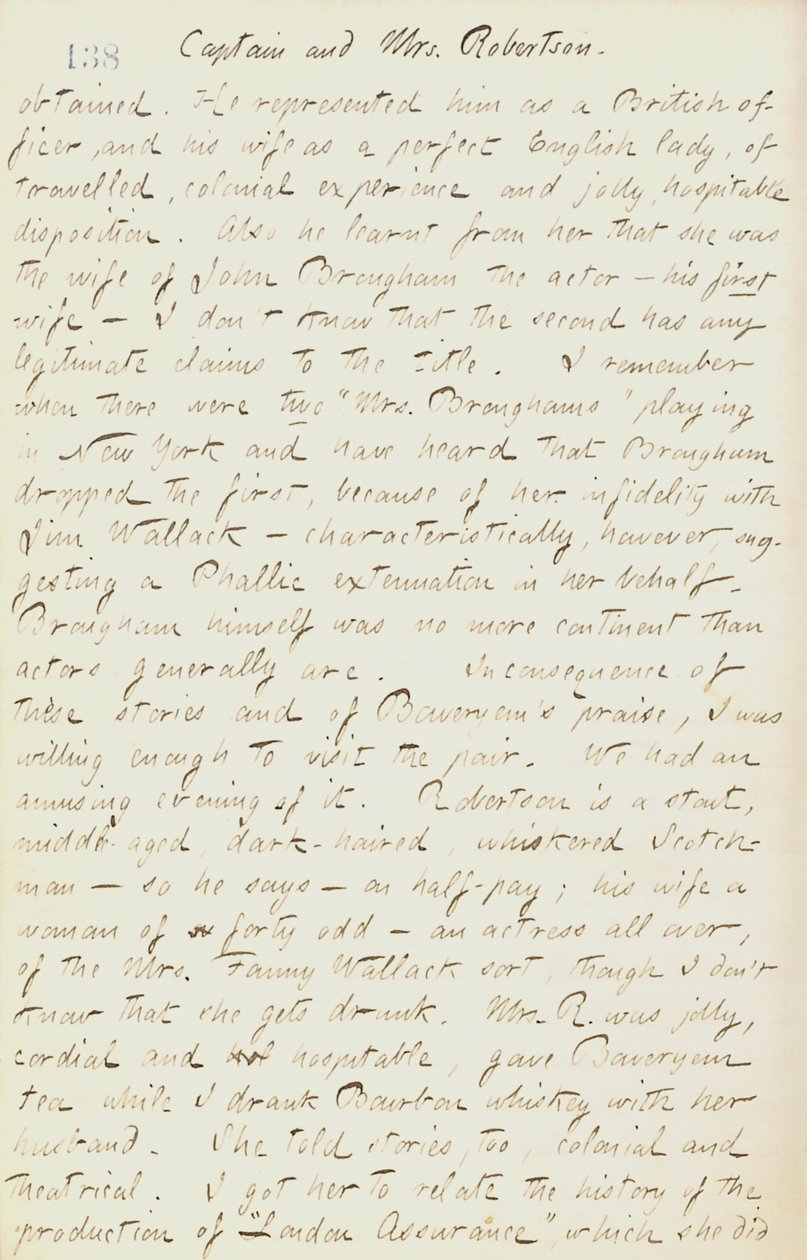 138
Captain and Mrs. Robertson.
obtained. He represented him as a British of-
ficer, and his wife as a perfect English lady, of
travelled, colonial experience and jolly, hospitable
disposition. Also he learnt from her that she was
the wife of John Brougham the actor — his first
wife — I don't know that the second has any
legitimate claims to the title. I remember
when there were two "Mrs. Broughams" playing
in New York and have heard that Brougham
dropped the first, because of her infidelity with
Jim Wallack — characteristically, however, sug-
gesting a Phallic extenuation in her behalf.
Brougham himself was no more continent than
actors generally are. In consequence of
these stories and of Boweryem's praise, I was
willing enough to visit the pair. We had an
amusing evening of it. Robertson is a stout,
middle-aged, dark-haired, whiskered Scotch-
man — so he says — on half-pay; his wife a
woman of forty odd — an actress all over,
of the Mrs. Fanny Wallack sort, though I don't
know that she gets drunk. Mrs. R. was jolly,
cordial and hospitable, gave Boweryem
tea while I drank Bourbon whiskey with her
husband. She told stories, too, colonial and
theatrical. I got her to relate the history of the
production of "London Assurance", which she did